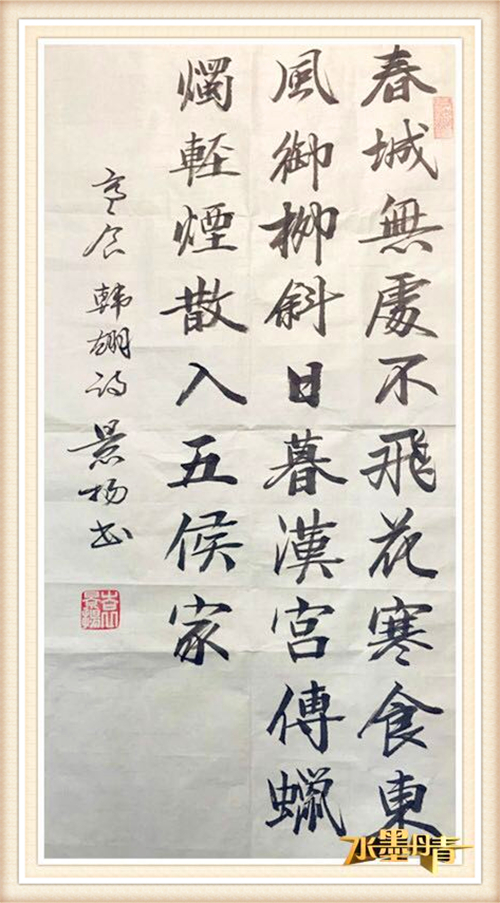 春城無處不飛花寒食東
風御柳斜日暮漢宮傳蠟
燭輕煙散入五侯家
寒食韩翃诗景扬书
水墨丹青